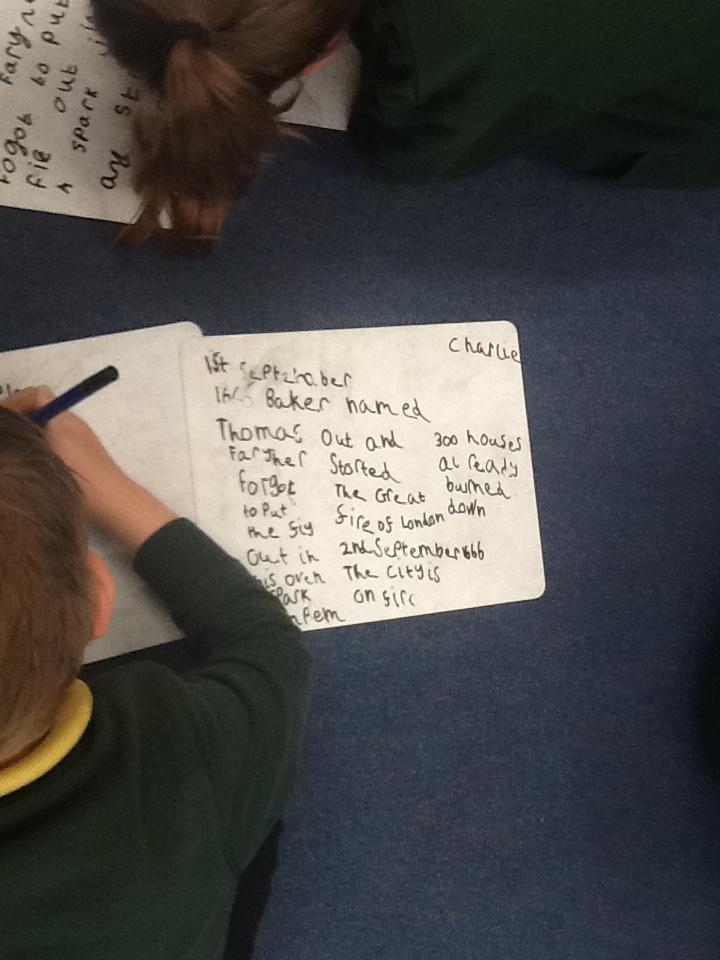 Faryn
Fogot to put
fie out
A spark
are st
Charlie
1st Septzhaber
Baker named
Thomas
Faryher
forgot
to Put
the fiy
Out in
his oven
spark
Out and
Started
The Great
fire of London
2nd September 1666
The City is
on fire
300 houses
al ready
burned
down